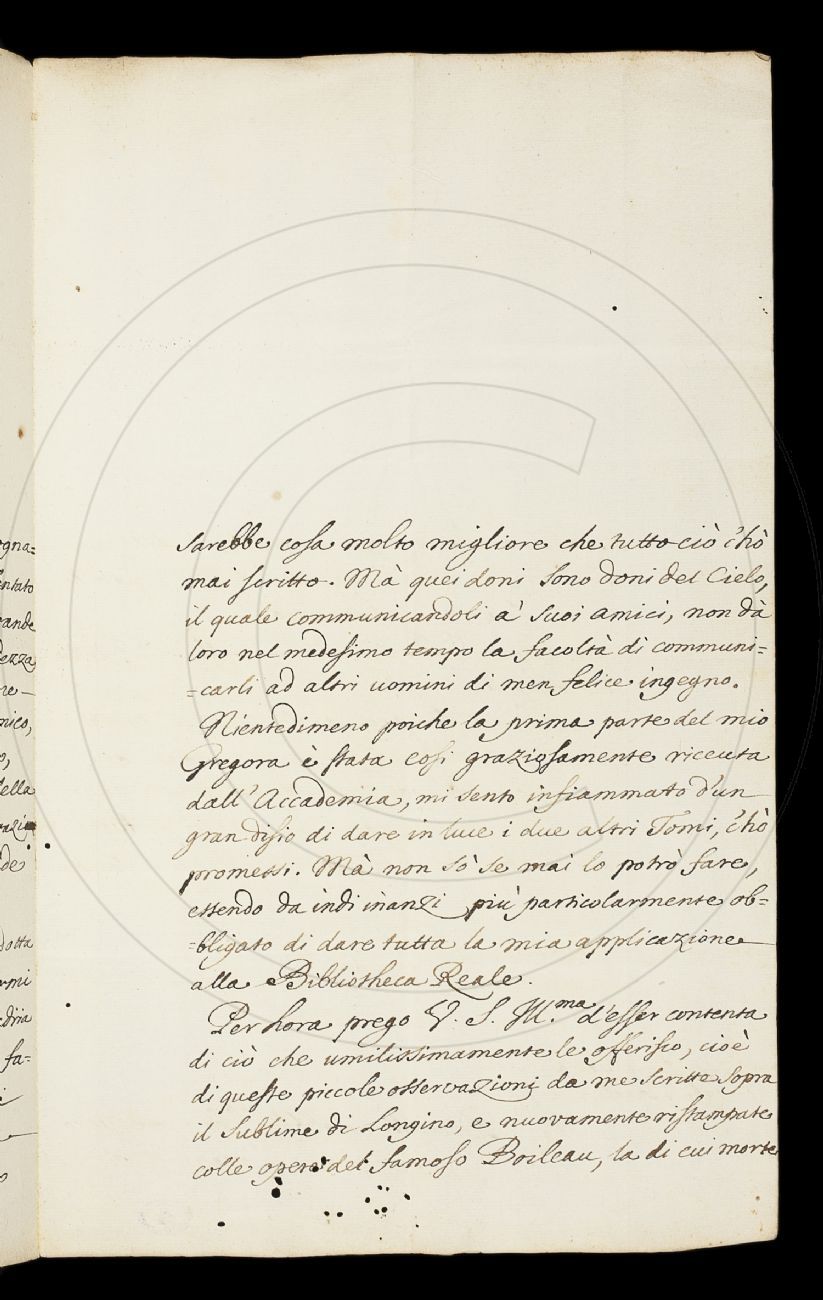 sarebbe cosa molto migliore che tutto ciò c'hò
mai scritto. Mà quei doni sono doni del Cielo,
il quale communicandoli a' suoi amici, non dà
loro nel medesimo tempo la facoltà di communi=
=carli ad altri uomini di men felice ingegno.
Nientedimeno poiche la prima parte del mio
Gregora è stata così graziosamente riceuta
dall' Accademia, mi sento infiammato d'un
gran disio di dare in luce i due altri Tomi, c'hò
promessi. Mà non sò se mai lo potrò fare,
essendo da indi inanzi più particolarmente ob=
=bligato di dare tutta la mia applicazione
alla Bibliotheca Reale.
Per hora prego V. S. Ill.ma d'esser contenta
di ciò che umilissimamente le offerisco, cioè
di queste piccole osservazioni da me scritte sopra
il Sublime di Longino, e nuovamente ristampate
colle opere del famoso Boileau, la di cui morte
ogna=
entato
rande
dezza
re
nico,
o,
della
de
dotta
rmi
fa=